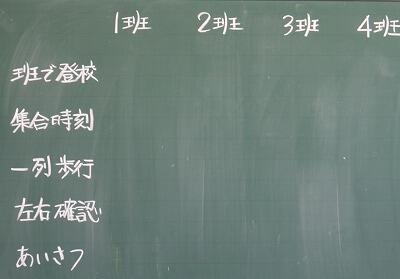 1班 2班 3班 4班
班で登校
集合時刻
一列歩行
左右確認
あいさつ